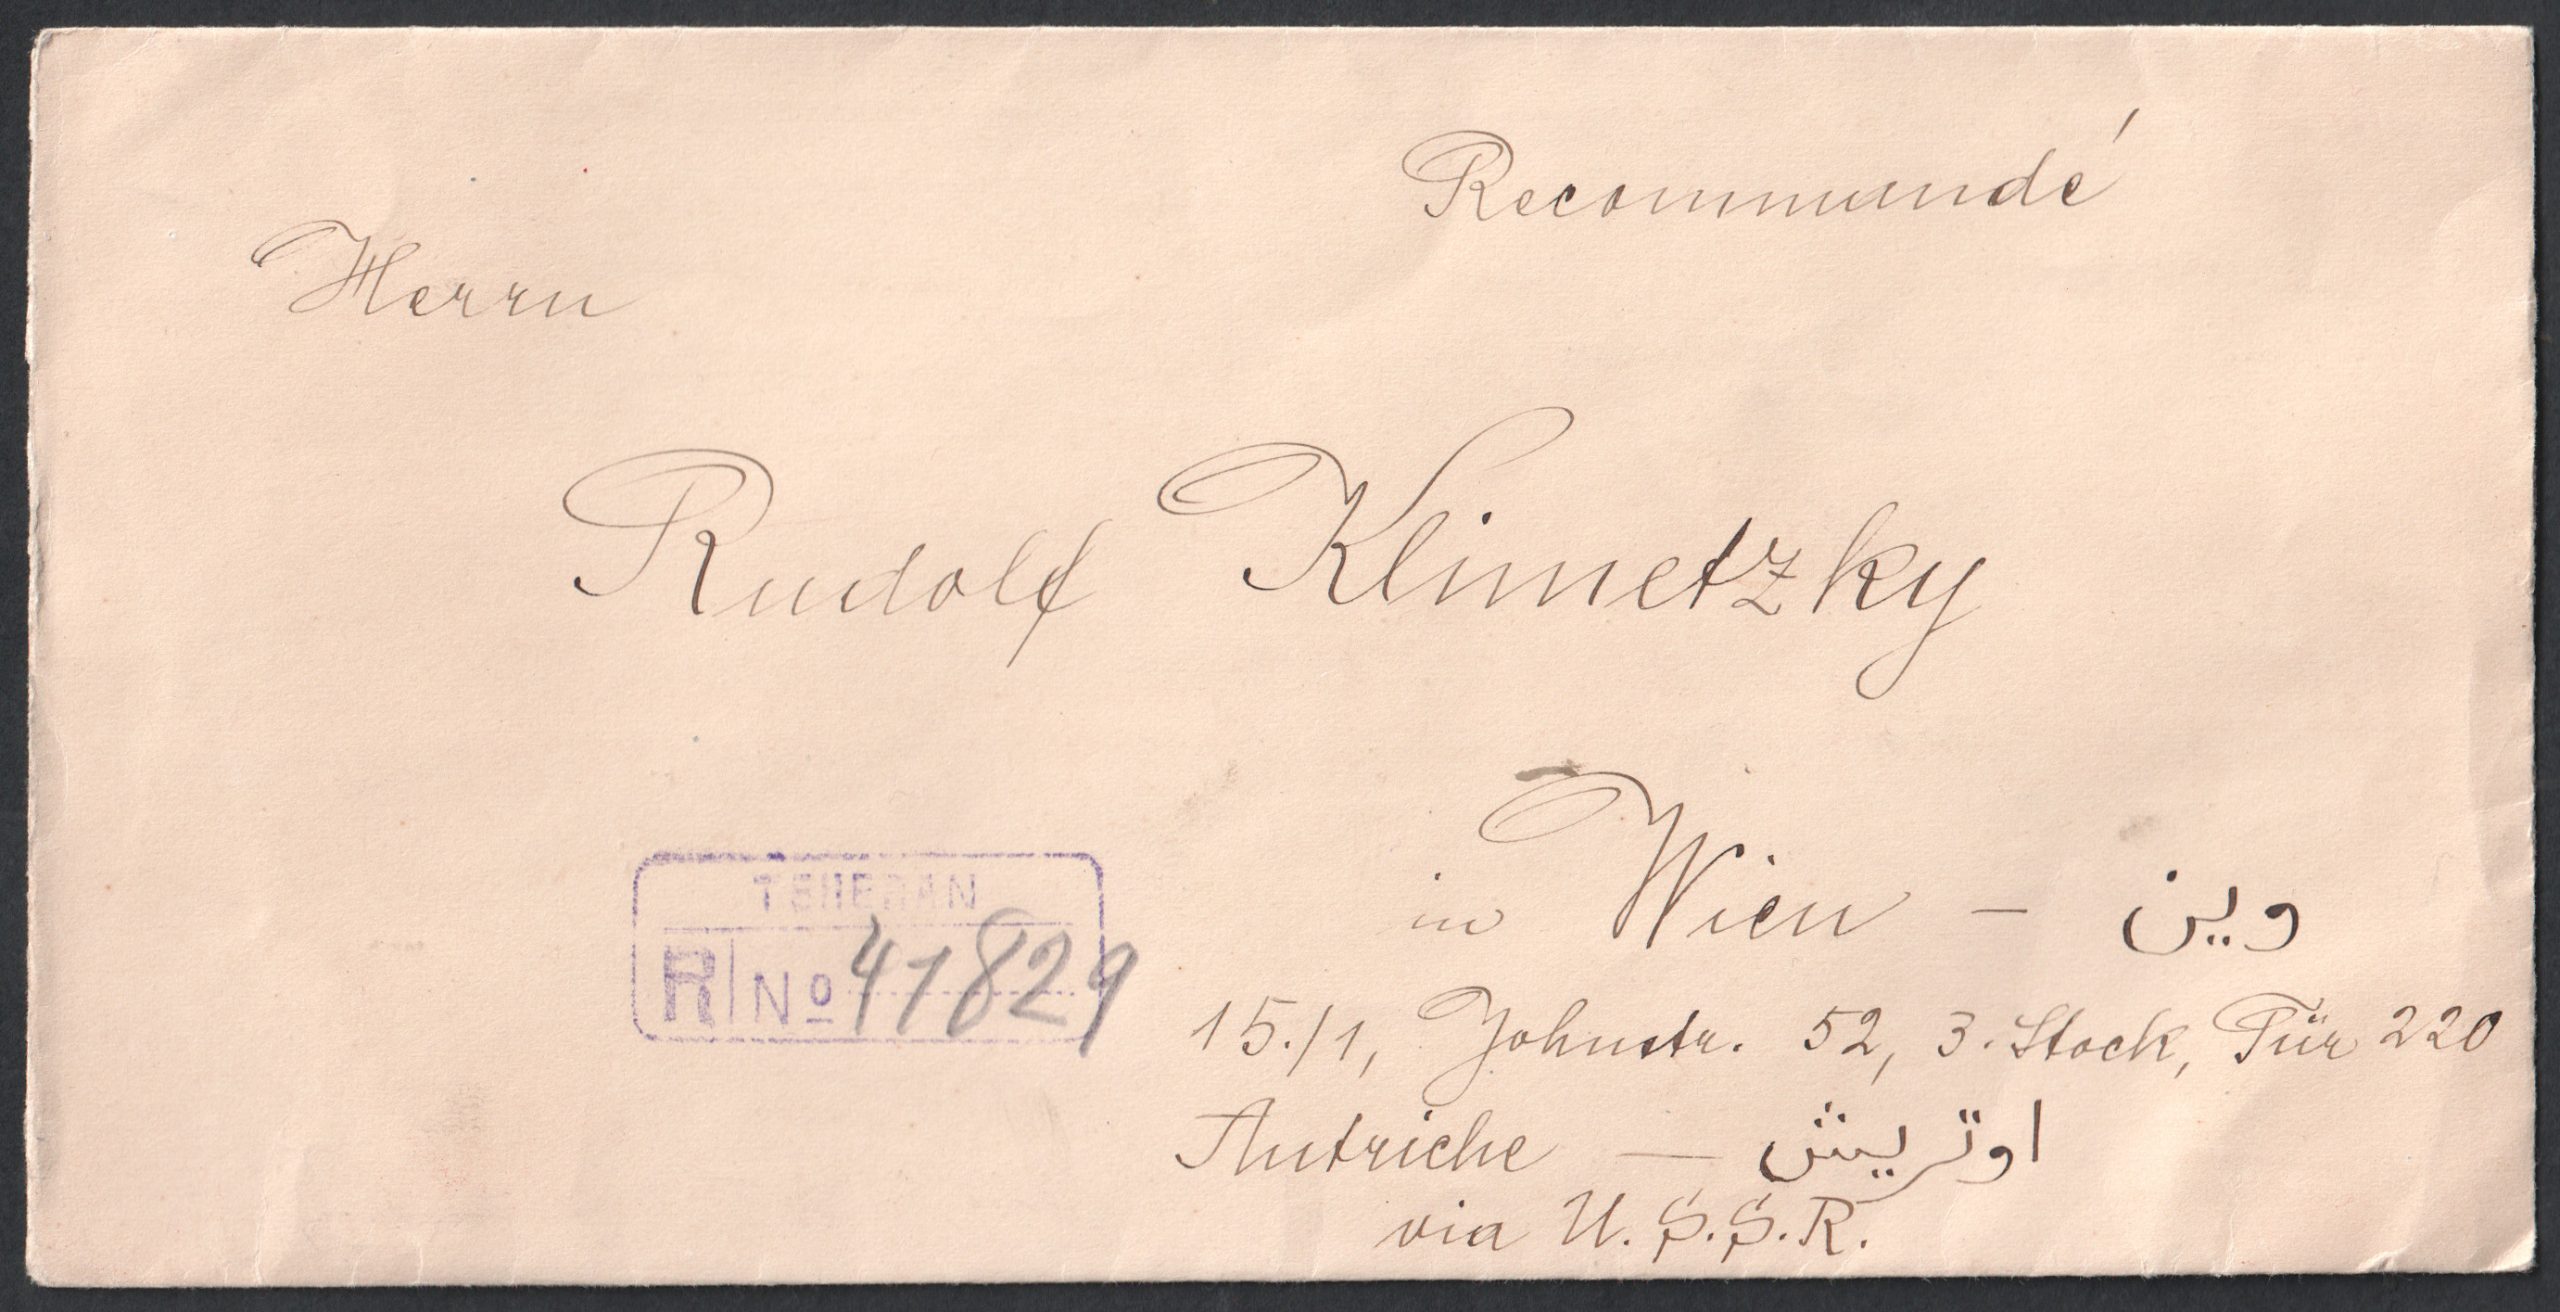 Recommandé
Herrn
Rudolf Klimetzky
in Wien – وين
TEHERAN
R Nº 41829
15./1, Johnstr. 52, 3. Stock, Tür 220
Autriche — اوتريش
via U.S.S.R.